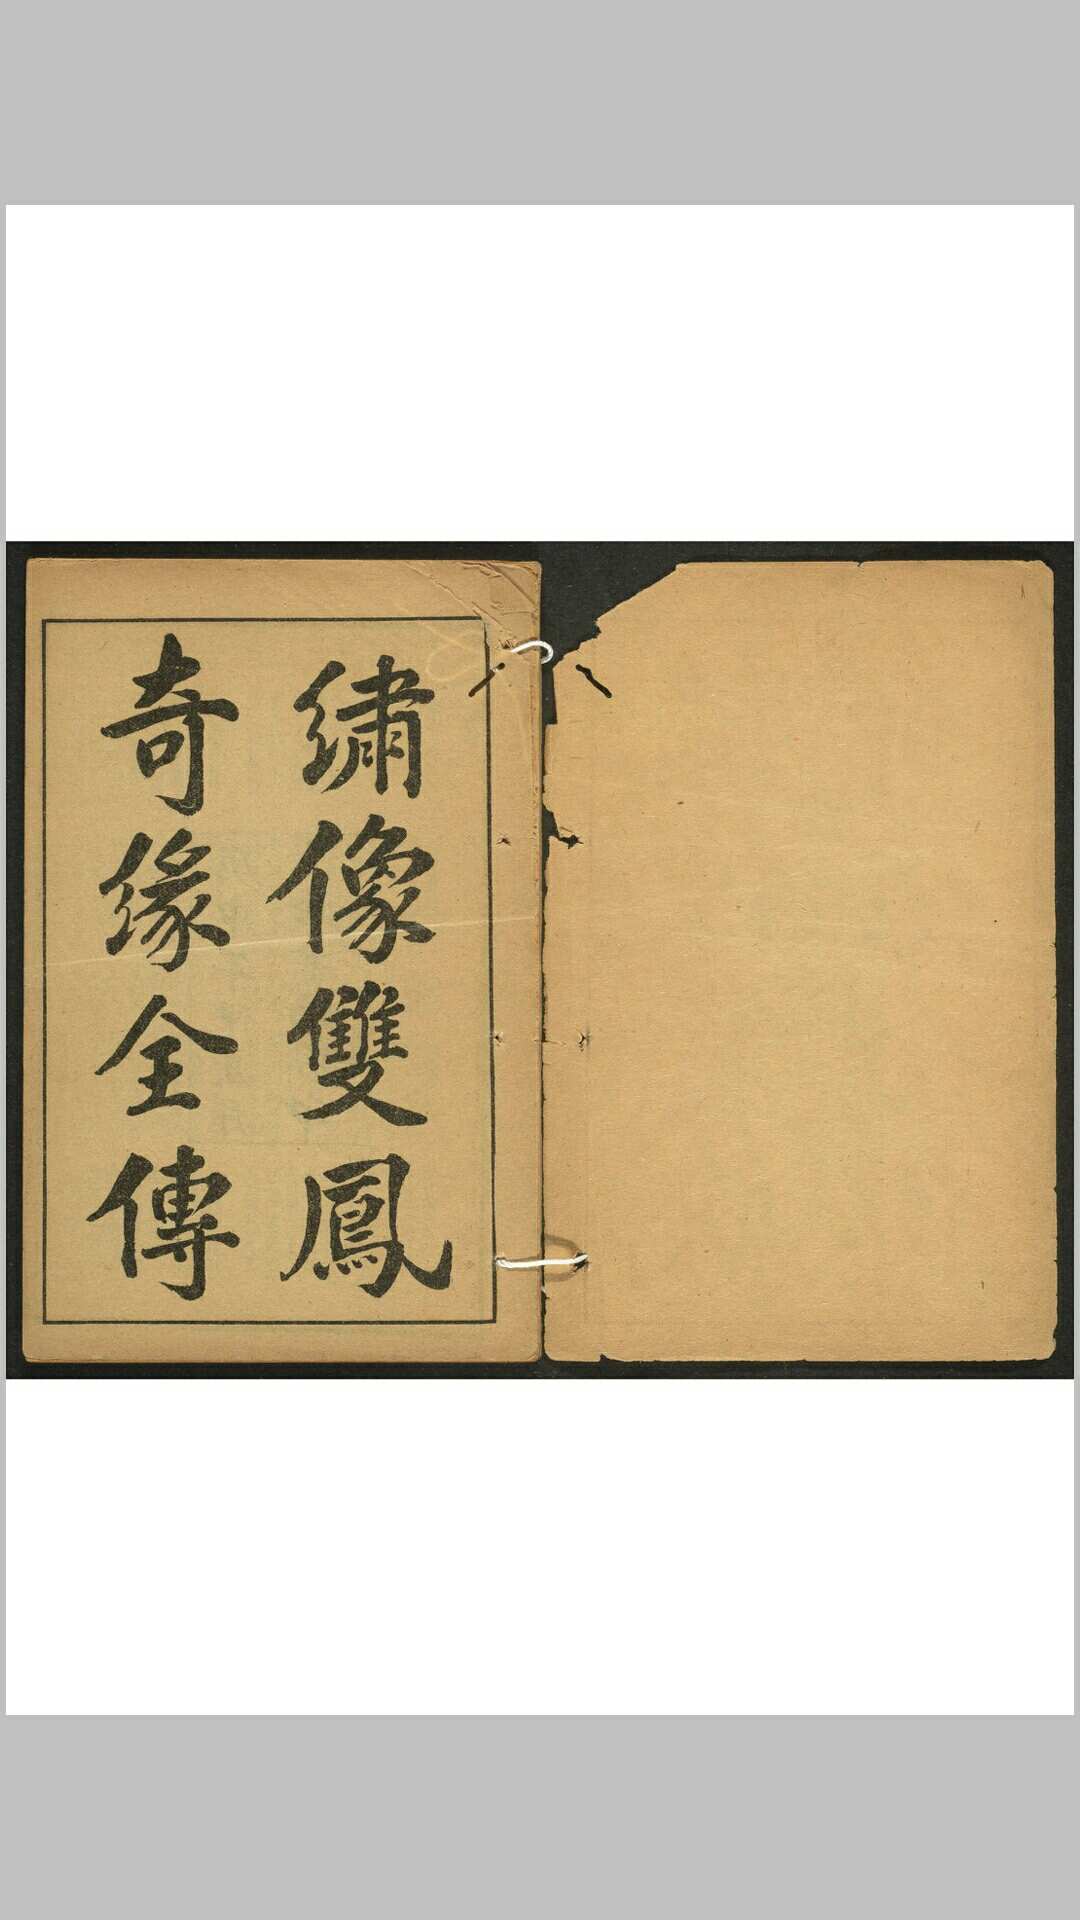 繡像雙鳳
奇緣全傳